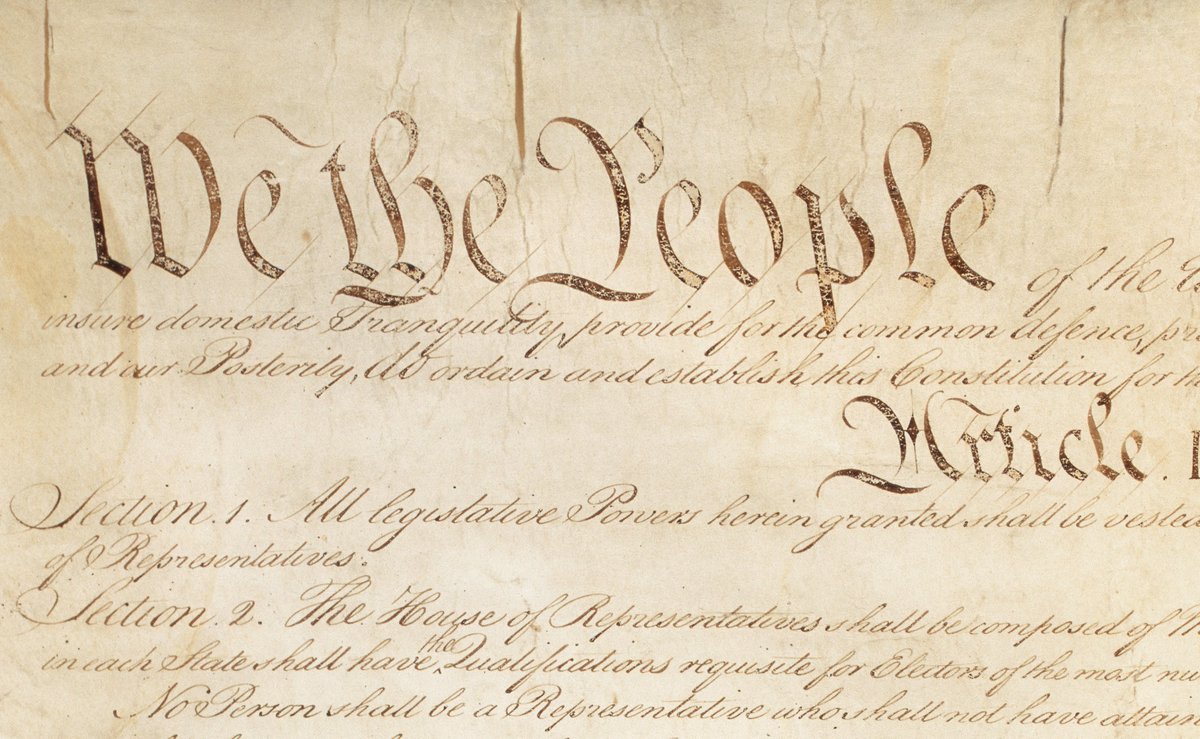 We the People of the
insure domestic Tranquility, provide for the common defence,
and our Posterity, do ordain and establish this Constitution for
Article. I
Section. 1. All legislative Powers herein granted shall be
of Representatives.
Section. 2. The House of Representatives shall be composed of
in each State shall have the Qualifications requisite for Electors of the most
No Person shall be a Representative who shall not have